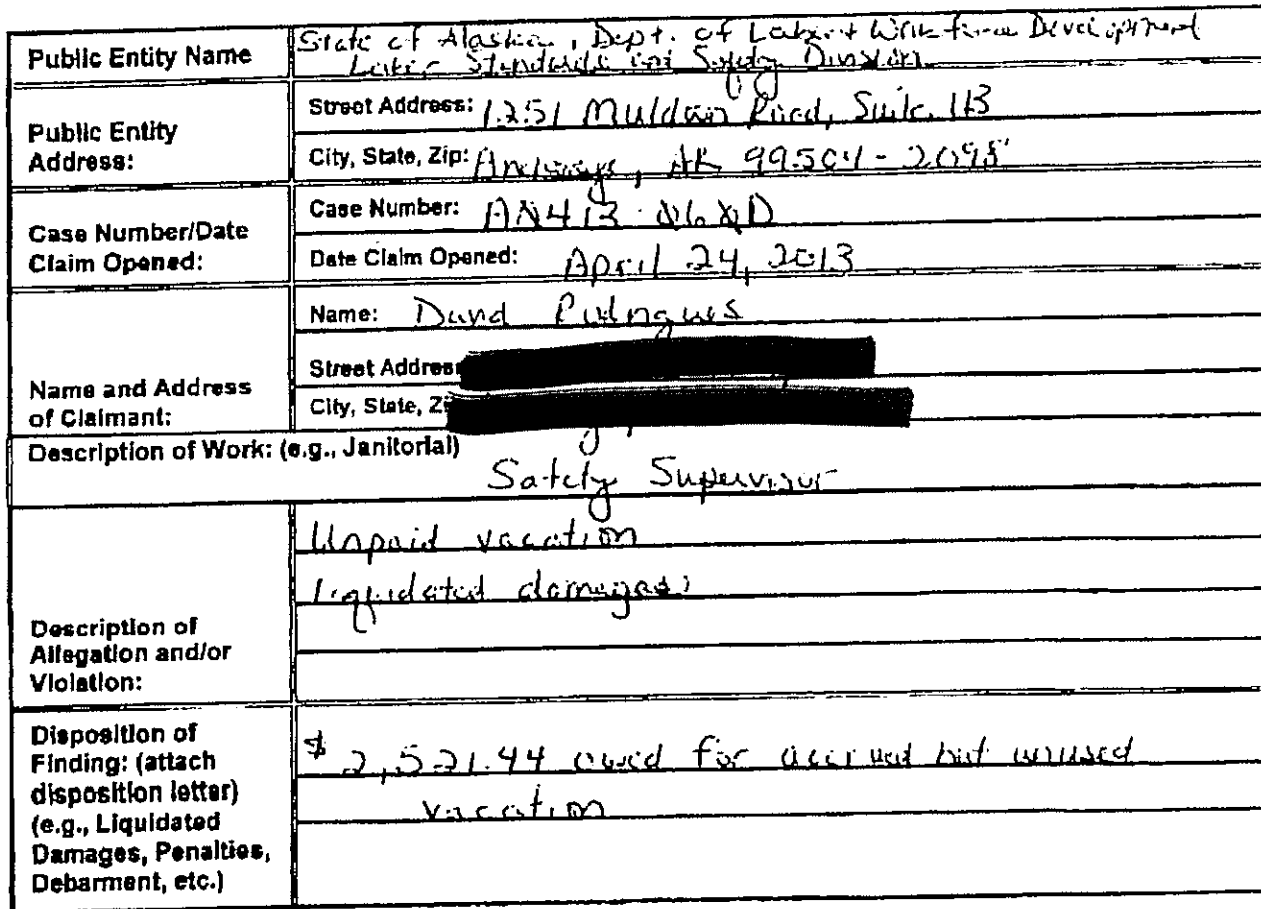 Public Entity Name
State of Alaska, Dept. of Labor & Workforce Development
Labor Standards and Safety Division
Public Entity Address:
Street Address: 1251 Muldoon Road, Suite 113
City, State, Zip: Anchorage, AK 99504-2098
Case Number/Date Claim Opened:
Case Number: AN413
Date Claim Opened: April 24, 2013
Name and Address of Claimant:
Name: David
Street Address
City, State, Zi
Description of Work: (e.g., Janitorial)
Safety Supervisor
Description of Allegation and/or Violation:
Unpaid vacation
liquidated damages
Disposition of Finding: (attach disposition letter) (e.g., Liquidated Damages, Penalties, Debarment, etc.)
$2,521.44 owed for accrued but unused
vacation